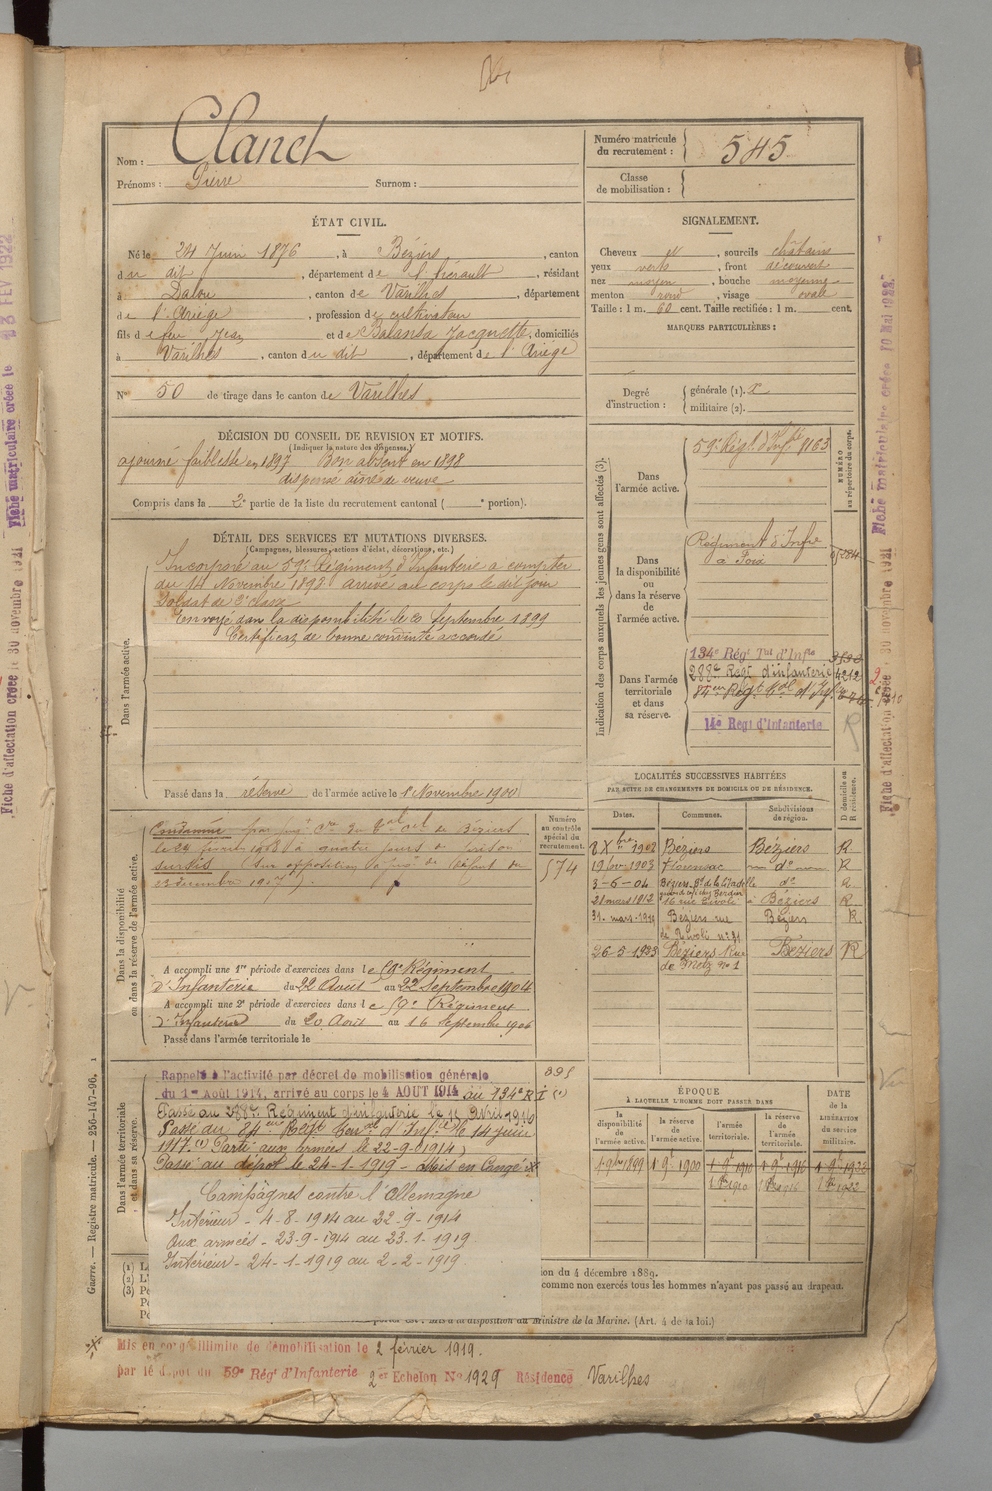 Nom : Clanet
Prénoms : Pierre Surnom :
Numéro matricule du recrutement : 545
Classe de mobilisation :
ÉTAT CIVIL.
Né le 24 Juin 1876, à Béziers, canton
du dit, département de l'Hérault, résidant
à Dalou, canton de Varilhes, département
de l'Ariège, profession de cultivateur
fils de feu Jean et de Balansa Jacquette, domiciliés
à Varilhes, canton du dit, département de l'Ariège
N° 50 de tirage dans le canton de Varilhes
SIGNALEMENT.
Cheveux et, sourcils châtains
yeux verts, front découvert
nez moyen, bouche moyenne
menton rond, visage ovale
Taille : 1 m. 60 cent. Taille rectifiée : 1 m. cent.
MARQUES PARTICULIÈRES :
Degré d'instruction : générale (1). x
militaire (2).
DÉCISION DU CONSEIL DE REVISION ET MOTIFS.
(Indiquer la nature des dispenses.)
ajourné faiblesse en 1897 Bon absent en 1898
dispensé aîné de veuve
Compris dans la 2e partie de la liste du recrutement cantonal ( e portion).
DÉTAIL DES SERVICES ET MUTATIONS DIVERSES.
(Campagnes, blessures, actions d'éclat, décorations, etc.)
Dans l'armée active.
Incorporé au 59e Régiment d'Infanterie à compter
du 14 Novembre 1898 arrivé au corps le dit jour
Soldat de 2e classe
Envoyé dans la disponibilité le 20 Septembre 1899
Certificat de bonne conduite accordé
Passé dans la réserve de l'armée active le 1er Novembre 1900
Indication des corps auxquels les jeunes gens sont affectés (3).
NUMÉRO au répertoire du corps.
Dans l'armée active.
59e Régt d'Infrie 8163
Dans la disponibilité ou dans la réserve de l'armée active.
Régiment d'Infrie
à Foix
Dans l'armée territoriale et dans sa réserve.
134e Régt Tial d'Infie
288e Regt d'infanterie 4212
84eme Régt Tal d'Infie
14e Régt d'Infanterie
R
LOCALITÉS SUCCESSIVES HABITÉES
PAR SUITE DE CHANGEMENTS DE DOMICILE OU DE RÉSIDENCE.
Dates. Communes. Subdivisions de région. D domicile ou R résidence.
8 Xbre 1902 Béziers Béziers R
1903 Florensac do R
3-6-04 Béziers do R
21 mars 1912 16 rue Rivoli à Béziers R
31 mars 1926 Béziers rue Béziers R.
de Rivoli n° 21
26-5-1933 Béziers Rue Béziers R
de Metz n° 1
Dans la disponibilité ou dans la réserve de l'armée active.
Numéro au contrôle spécial du recrutement.
574
Condamné par jugt de Béziers
le 24 février 1908 à quatre jours de prison
sursis (sur opposition à jugt de défaut du
23 décembre 1907).
A accompli une 1re période d'exercices dans le 59e Régiment
d'Infanterie du 22 Août au 22 Septembre 1904
A accompli une 2e période d'exercices dans le 59e Régiment
d'Infanterie du 20 Août au 16 Septembre 1906
Passé dans l'armée territoriale le
Dans l'armée territoriale et dans sa réserve.
Rappelé à l'activité par décret de mobilisation générale
du 1er Août 1914, arrivé au corps le 4 AOUT 1914 au 134e R I (1)
Passé au 288e Régiment d'infanterie le 11 Avril 1916
Passé au 84eme Régt Terral d'Infie le 14 juin
1917. (1) Parti aux armées le 22-9-1914)
Passé au dépôt le 24-1-1919 - Mis en Congé
Campagnes contre l'Allemagne
Intérieur - 4-8-1914 au 22-9-1914
Aux armées - 23-9-1914 au 23-1-1919
Intérieur - 24-1-1919 au 2-2-1919
ÉPOQUE
À LAQUELLE L'HOMME DOIT PASSER DANS
la disponibilité de l'armée active. la réserve de l'armée active. l'armée territoriale. la réserve de l'armée territoriale.
DATE de la LIBÉRATION du service militaire.
1 9bre 1899 1 9e 1900 1 9e 1910 1 9e 1916 1 9e 1922
(1) L
(2) L'
(3) Pe
Pe
Pe
ion du 4 décembre 1889.
comme non exercés tous les hommes n'ayant pas passé au drapeau.
Mis à la disposition du Ministre de la Marine. (Art. 4 de la loi.)
Mis en congé illimité de démobilisation le 2 février 1919.
par le dépôt du 59e Régt d'Infanterie 2e Echelon N° 1929 Résidence Varilhes
Guerre. — Registre matricule. — 256-147-96. 1
Fiche d'affectation créée le 30 novembre 1921
Fiche matriculaire créée le 13 FEV 1922
Fiche d'affectation créée 30 novembre 1921
Fiche matriculaire créée 10 Mai 1922